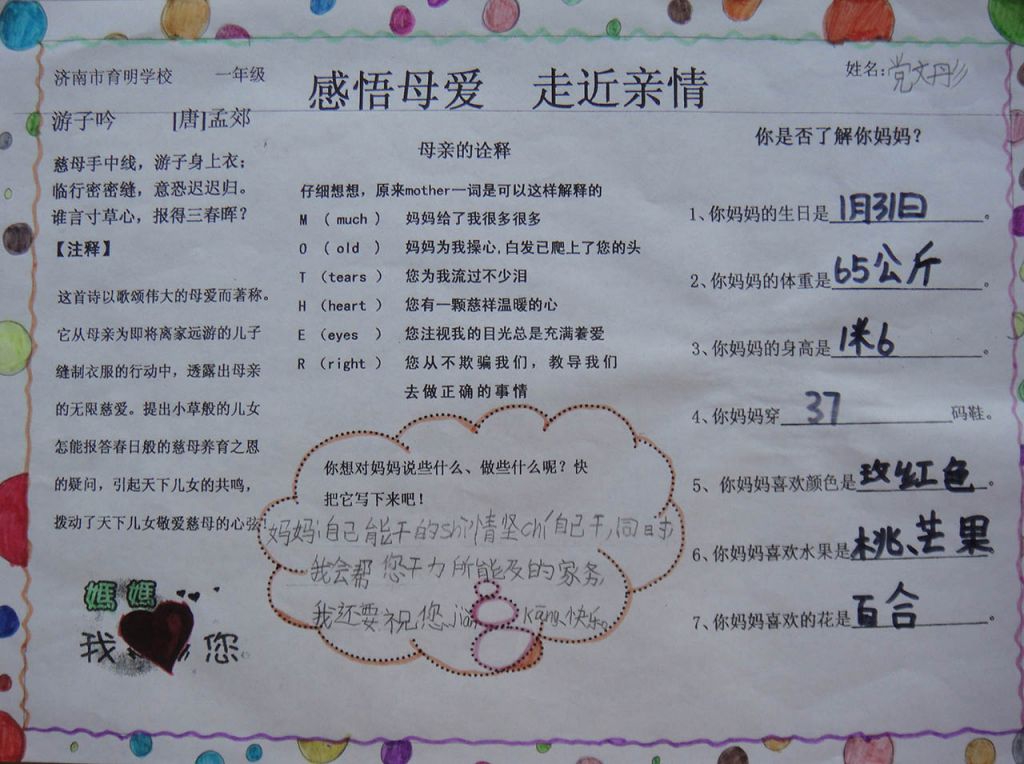 济南市育明学校 一年级
感悟母爱 走近亲情
姓名:党文丹彡
游子吟 [唐]孟郊
慈母手中线，游子身上衣；
临行密密缝，意恐迟迟归。
谁言寸草心，报得三春晖？
【注释】
这首诗以歌颂伟大的母爱而著称。
它从母亲为即将离家远游的儿子
缝制衣服的行动中，透露出母亲
的无限慈爱。提出小草般的儿女
怎能报答春日般的慈母养育之恩
的疑问，引起天下儿女的共鸣，
拨动了天下儿女敬爱慈母的心弦!
媽媽
我 您
母亲的诠释
仔细想想，原来mother一词是可以这样解释的
M （much） 妈妈给了我很多很多
O （old ） 妈妈为我操心,白发已爬上了您的头
T （tears） 您为我流过不少泪
H （heart） 您有一颗慈祥温暖的心
E （eyes ） 您注视我的目光总是充满着爱
R （right） 您从不欺骗我们，教导我们
去做正确的事情
你想对妈妈说些什么、做些什么呢？快
把它写下来吧！
妈妈:自己能干的shì情坚chí自己干,同时
我会帮您干力所能及的家务,
我还要祝您jiàn kāng、快乐。
你是否了解你妈妈？
1、你妈妈的生日是1月31日。
2、你妈妈的体重是65公斤。
3、你妈妈的身高是1米6。
4、你妈妈穿 37 码鞋。
5、你妈妈喜欢颜色是玫红色。
6、你妈妈喜欢水果是桃、芒果
7、你妈妈喜欢的花是百合。